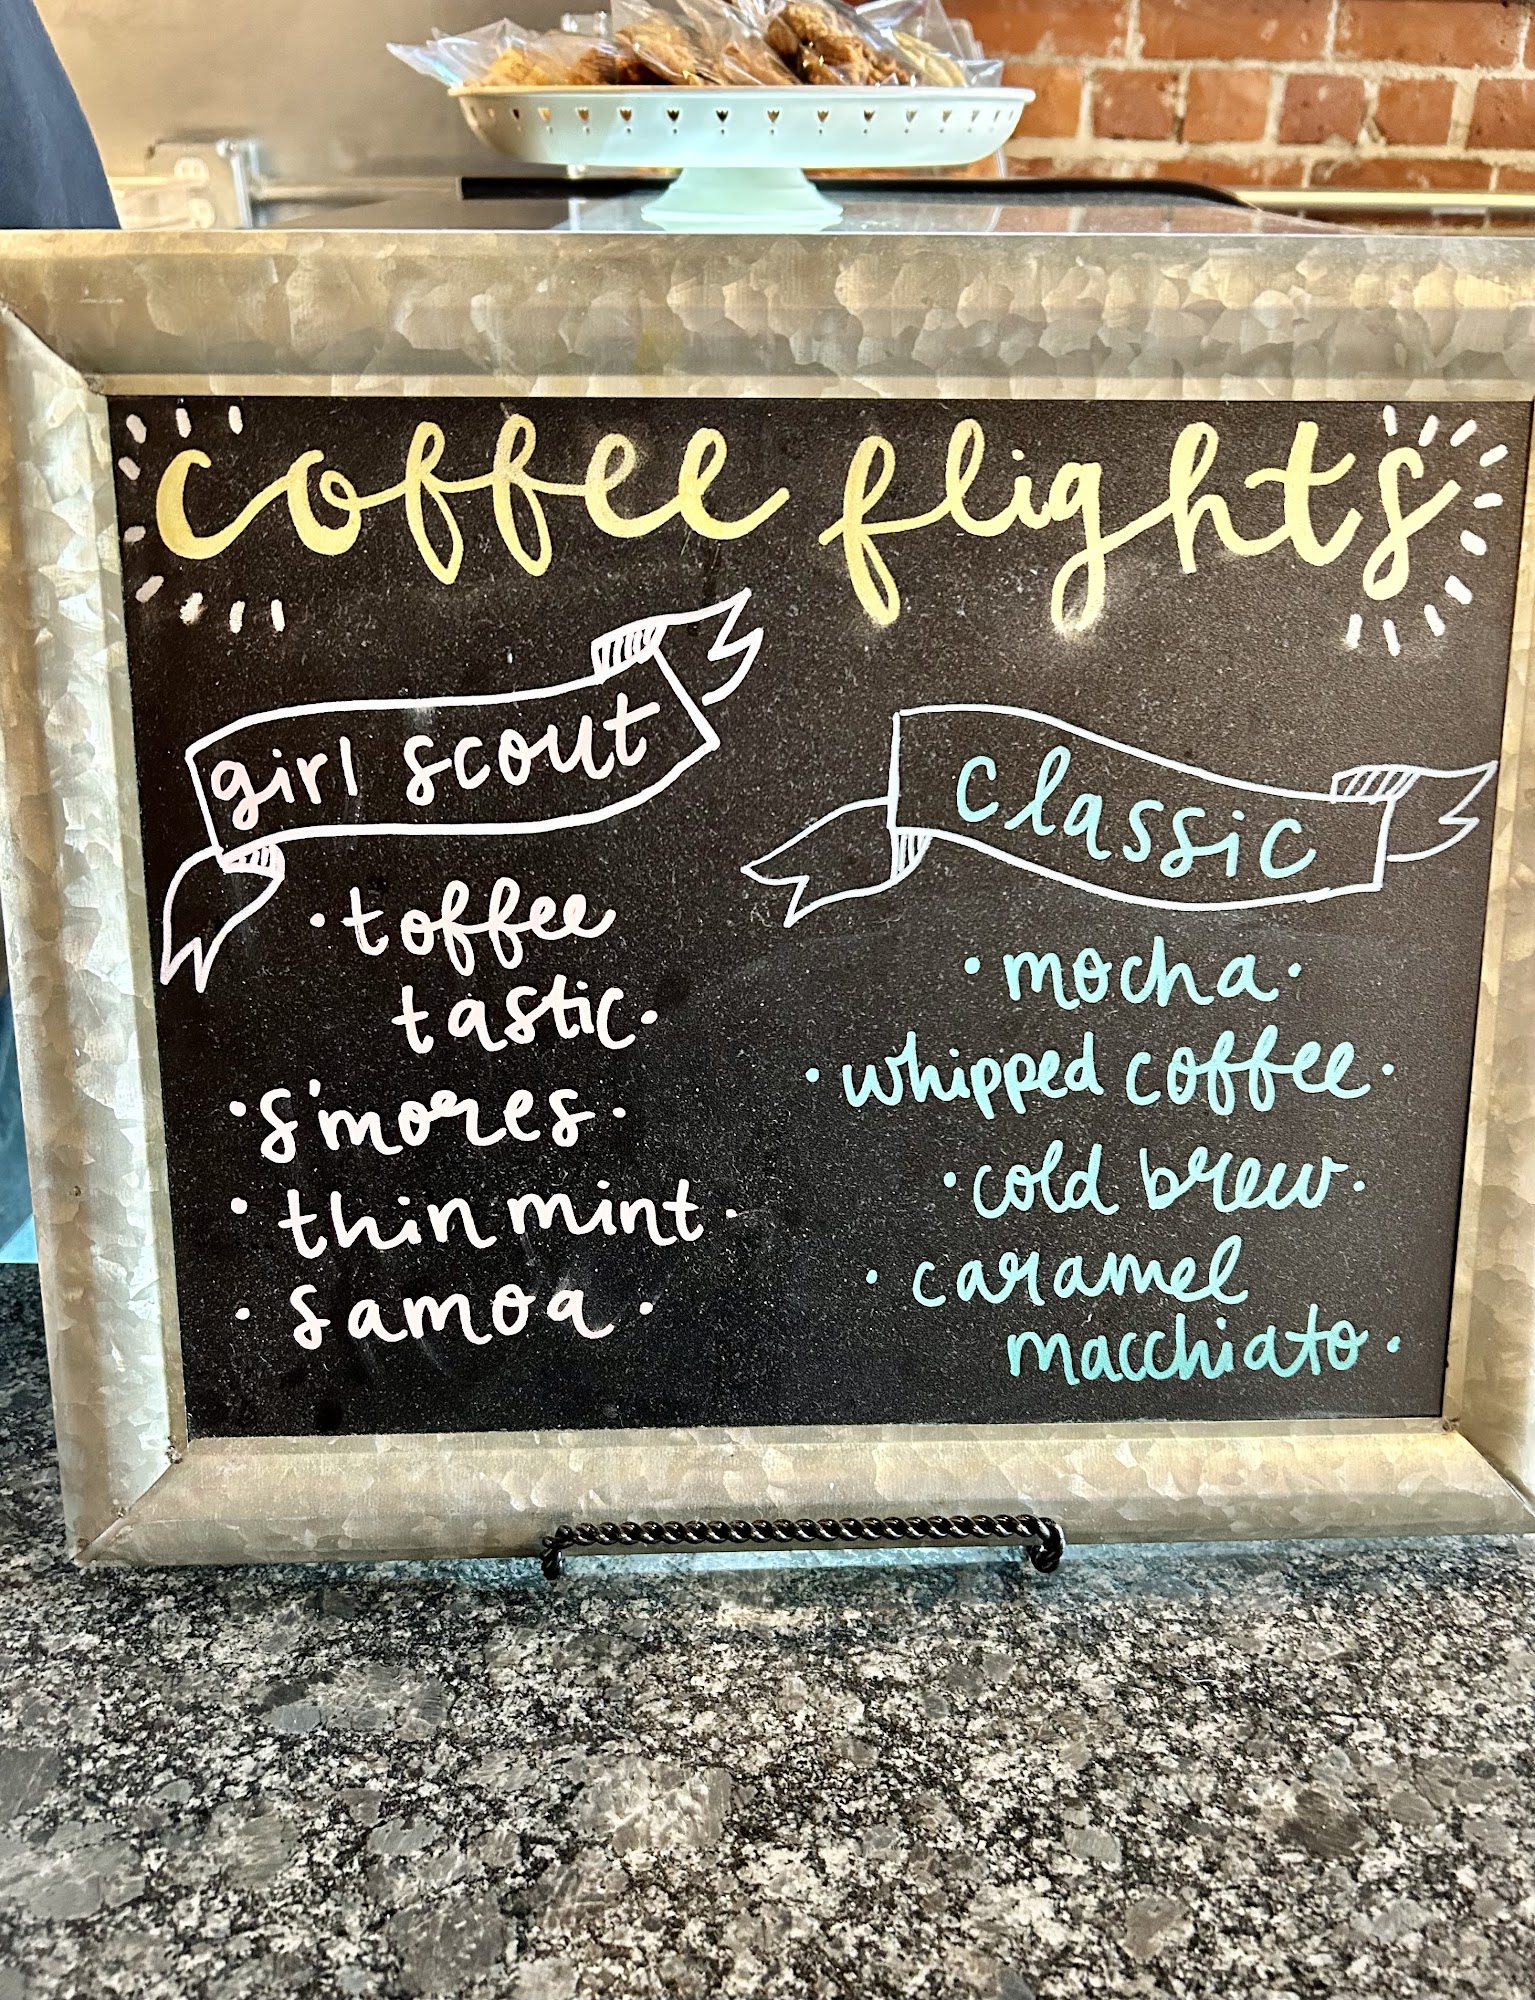 coffee flights
girl scout
· toffee
tastic ·
· s'mores ·
· thin mint ·
· samoa ·
classic
· mocha ·
· whipped coffee ·
· cold brew ·
· caramel
macchiato ·